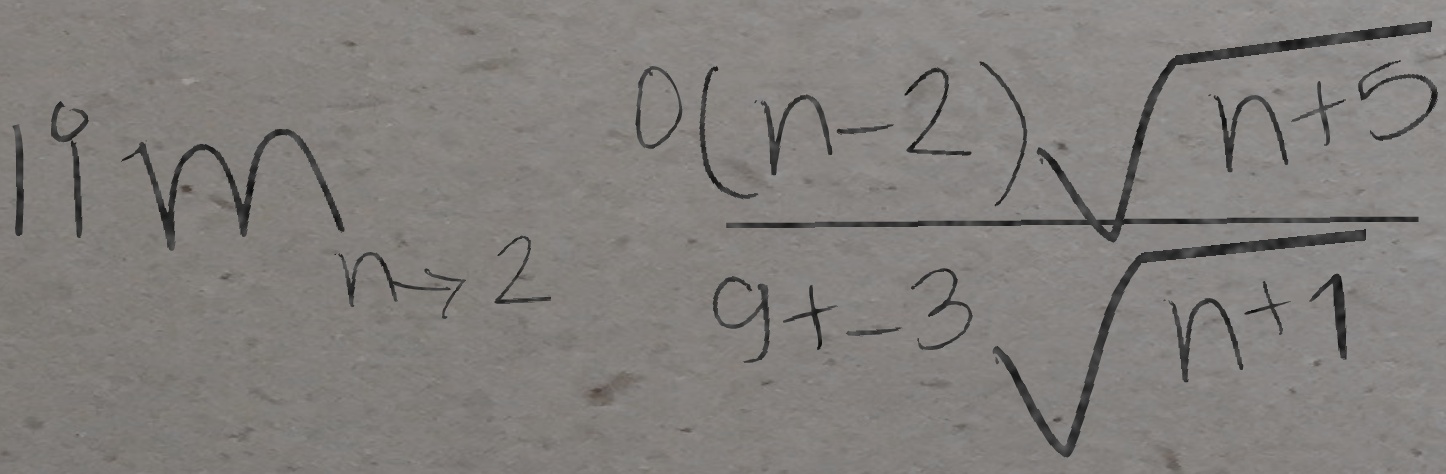 \lim_{n \to 2} \frac{0(n-2)\sqrt{n+5}}{9+-3\sqrt{n+1}}